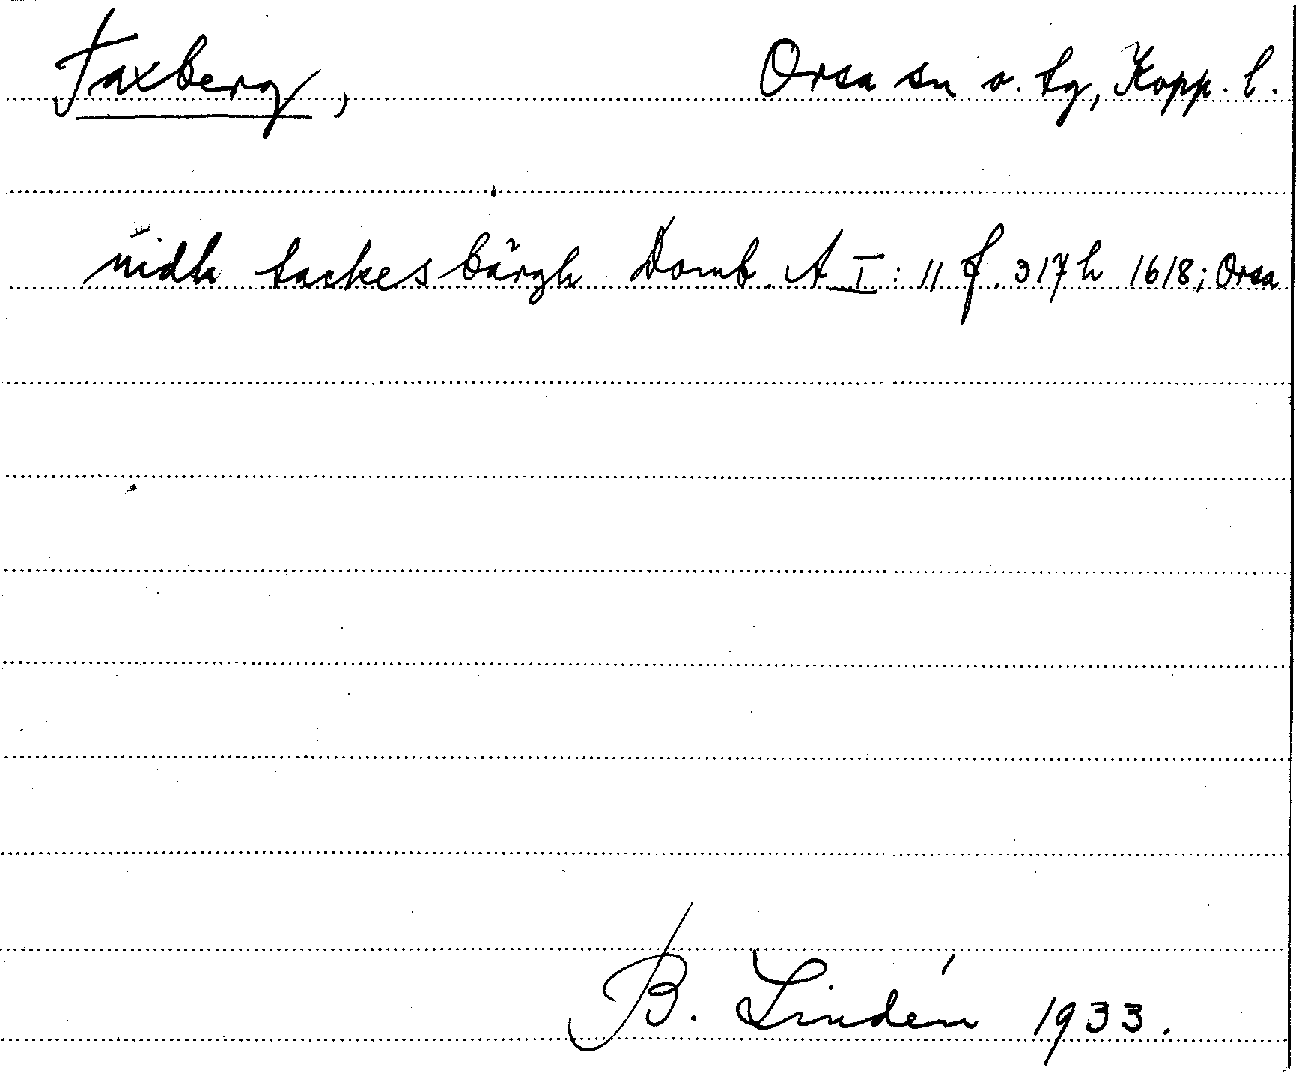 Taxberg, Orsa sn o. tg, Kopp. l.
vidh tackes bärgh Domb. A I: 11 f. 317 h 1618; Orsa
B. Lindén 1933.